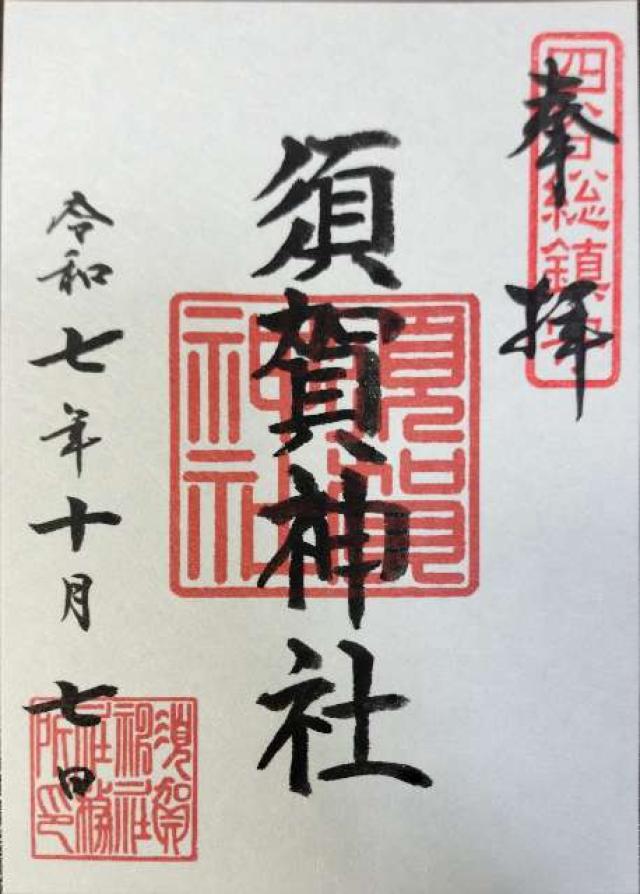 四谷総鎮守
奉拝
須賀神社
須賀神社
令和七年十月七日
須賀神社社務所印